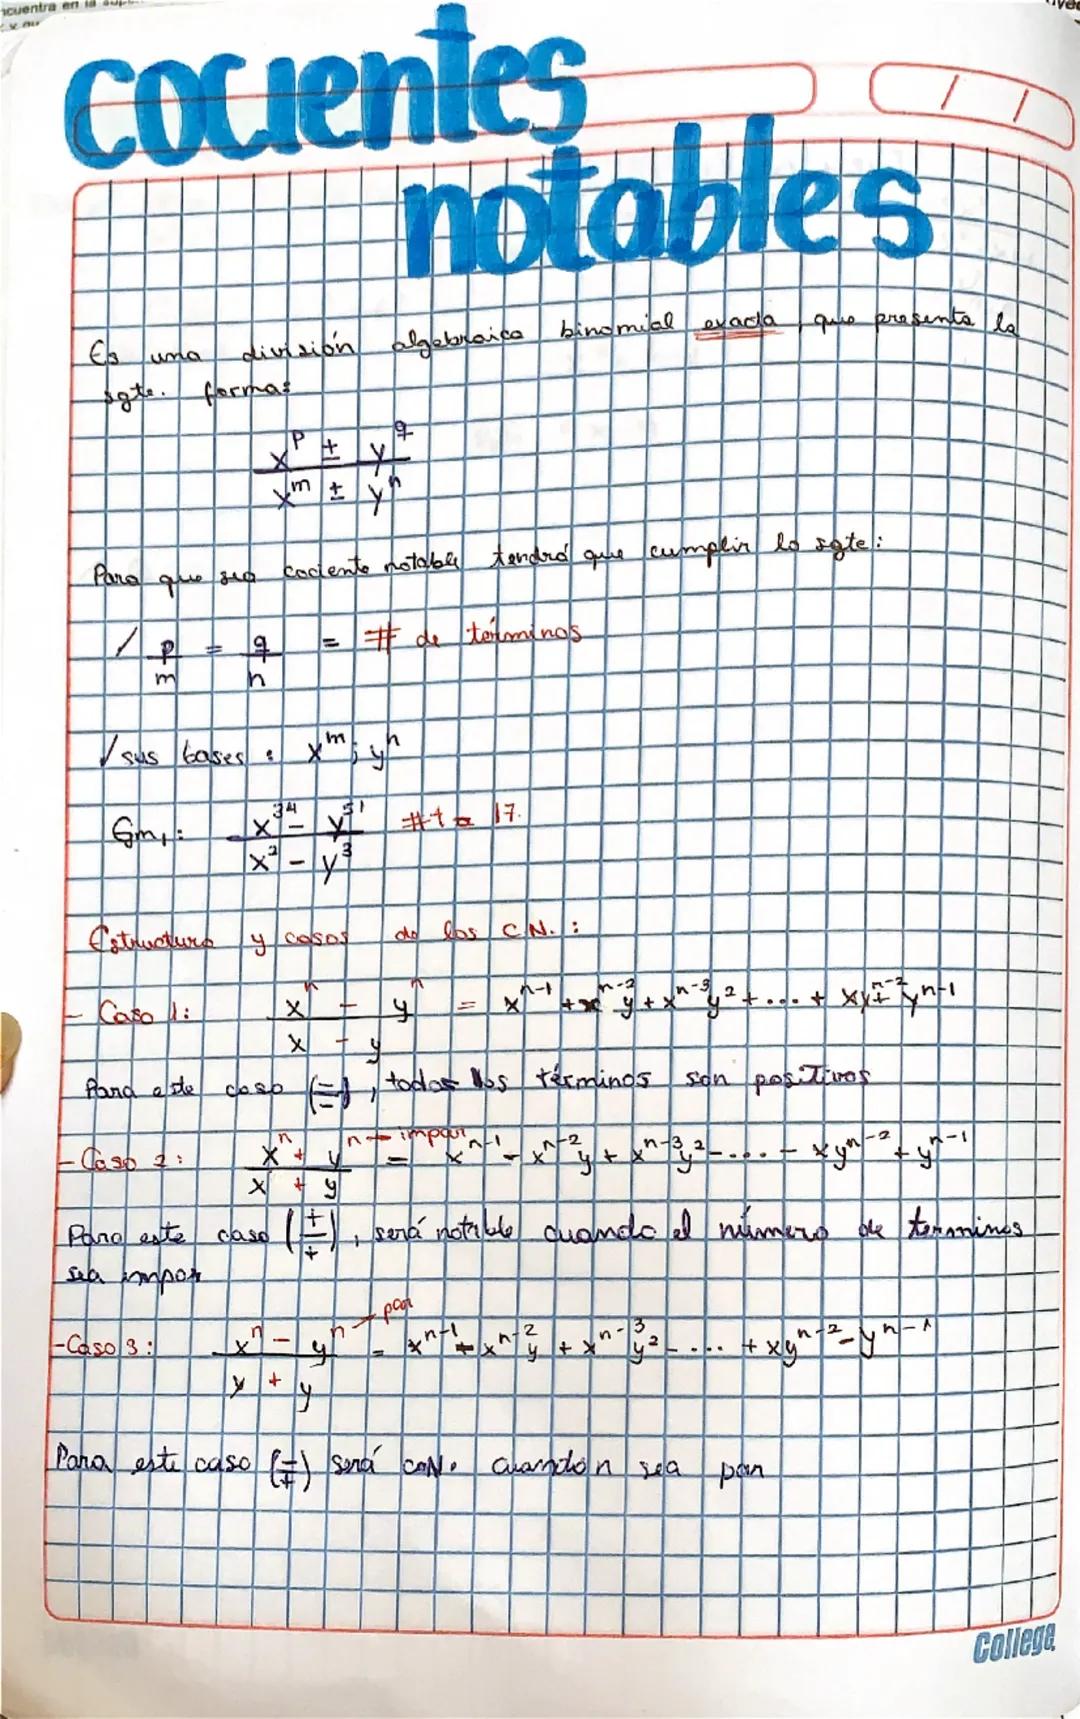 cuentra en la
cocientes
notables
Es una división algebraica binomial exacta, que presenta la
sgte. forma:
x^p ± y^q
x^m ± y^n
Para que sea cociente notable tendrá que cumplir lo sgte:
/ p/m = q/n = # de términos
√ sus bases : x^m ; y^n
x^34 - y^51 #t = 17.
x^2 - y^3
Estructura y casos de los C.N. :
- Caso 1: x^n - y^n = x^n-1 + x^n-2 y + x^n-3 y^2 + ... + xy^n-2 + y^n-1
x - y
Para este caso (-/-), todos los términos son positivos
- Caso 2: x^n + y^n → impar = x^n-1 - x^n-2 y + x^n-3 y^2 - ... - xy^n-2 + y^n-1
x + y
Para este caso (+/+), será notable cuando el número de terminos
sea impar
- Caso 3: x^n - y^n → par = x^n-1 - x^n-2 y + x^n-3 y^2 - ... + xy^n-2 - y^n-1
x + y
Para este caso (-/+) será C.N. cuando n sea par
College